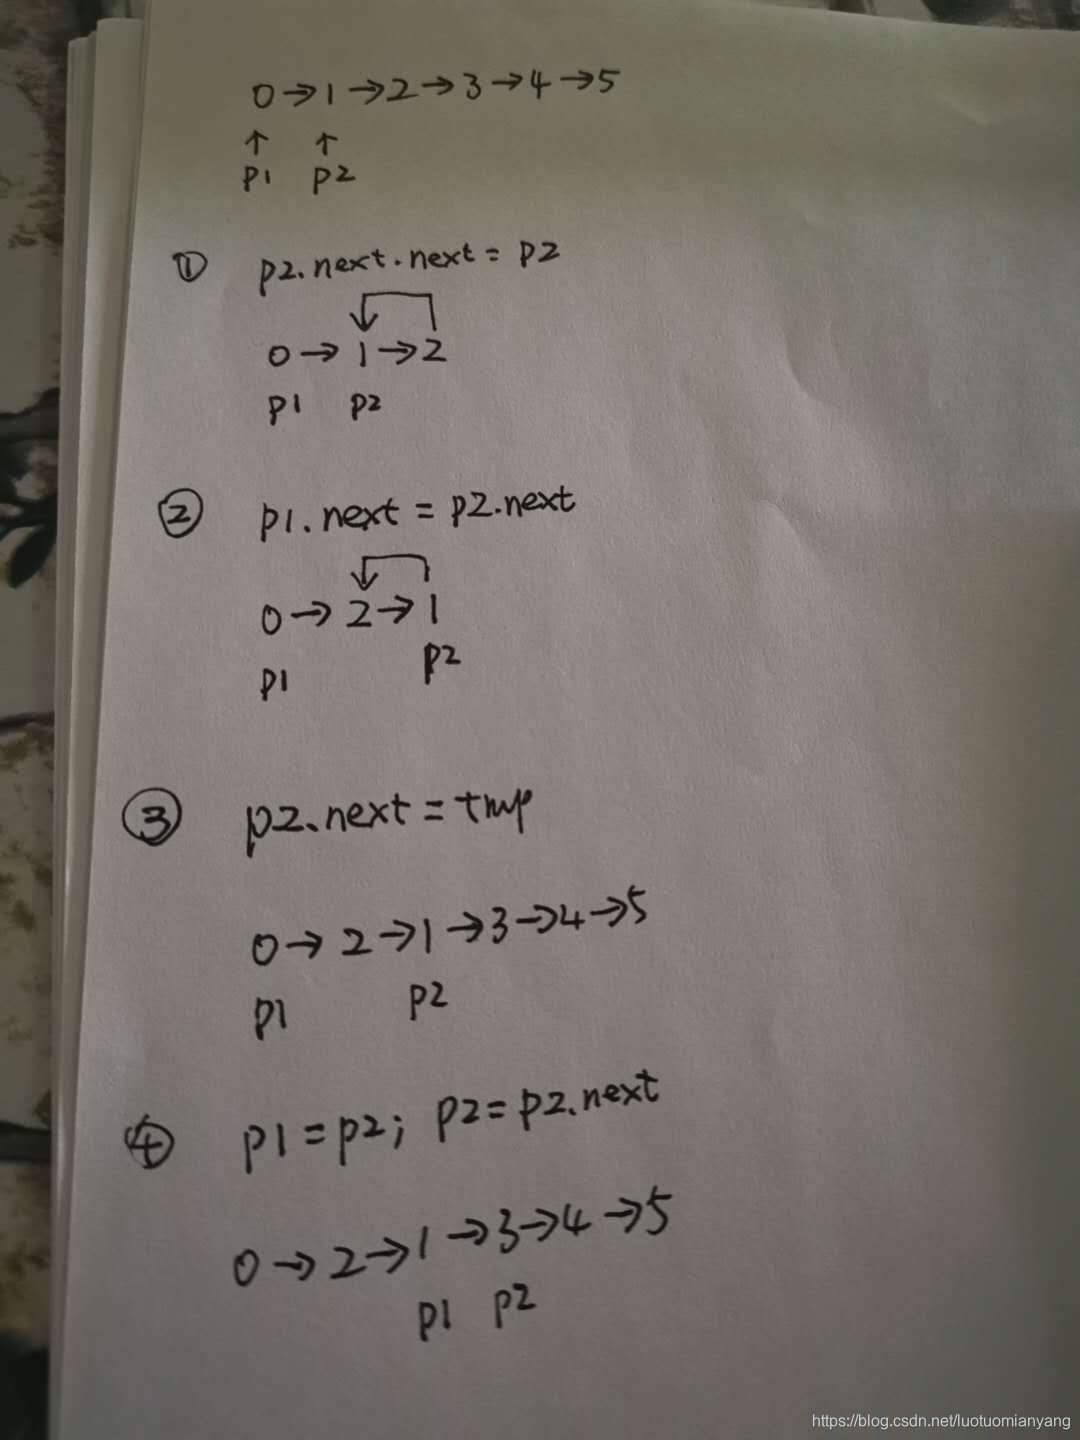 0→1→2→3→4→5
↑ ↑
p1 p2
① p2.next.next = p2
0→1→2
p1 p2
② p1.next = p2.next
0→2→1
p1 p2
③ p2.next = tmp
0→2→1→3→4→5
p1 p2
④ p1=p2; p2=p2.next
0→2→1→3→4→5
p1 p2
https://blog.csdn.net/luotuomianyang